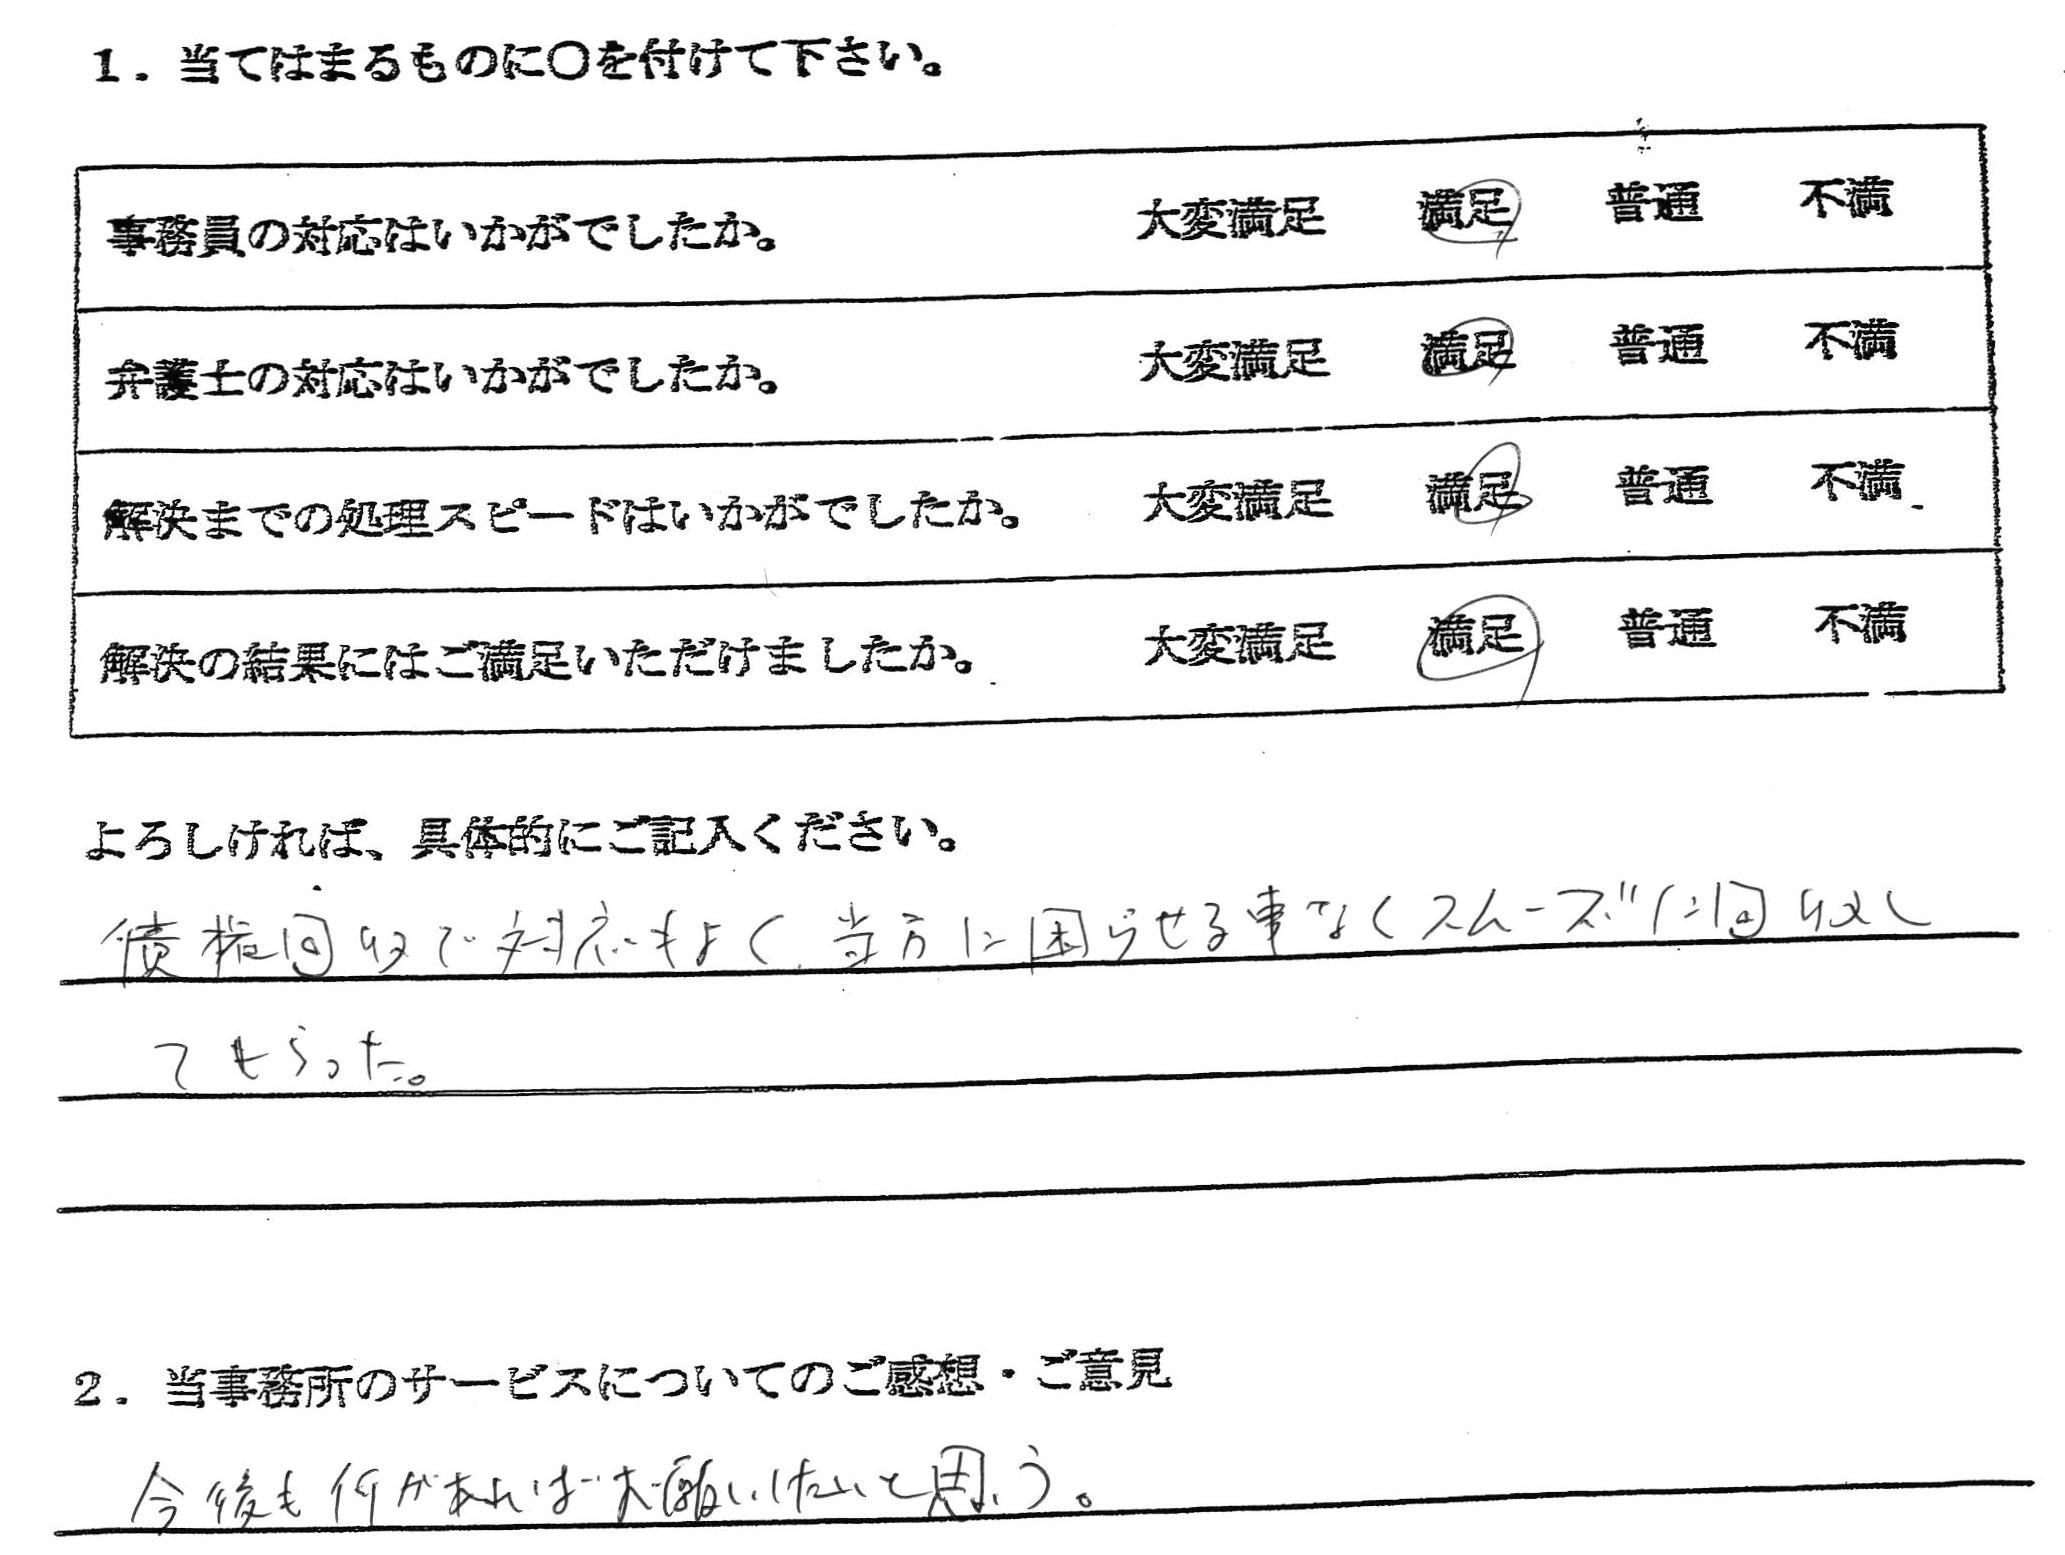 1．当てはまるものに○を付けて下さい。
事務員の対応はいかがでしたか。 大変満足 満足 普通 不満
弁護士の対応はいかがでしたか。 大変満足 満足 普通 不満
解決までの処理スピードはいかがでしたか。 大変満足 満足 普通 不満
解決の結果にはご満足いただけましたか。 大変満足 満足 普通 不満
よろしければ、具体的にご記入ください。
債権回収で対応もよく、当方に困らせる事なくスムーズに回収し
てもらった。
2．当事務所のサービスについてのご感想・ご意見
今後も何かあればお願いしたいと思う。